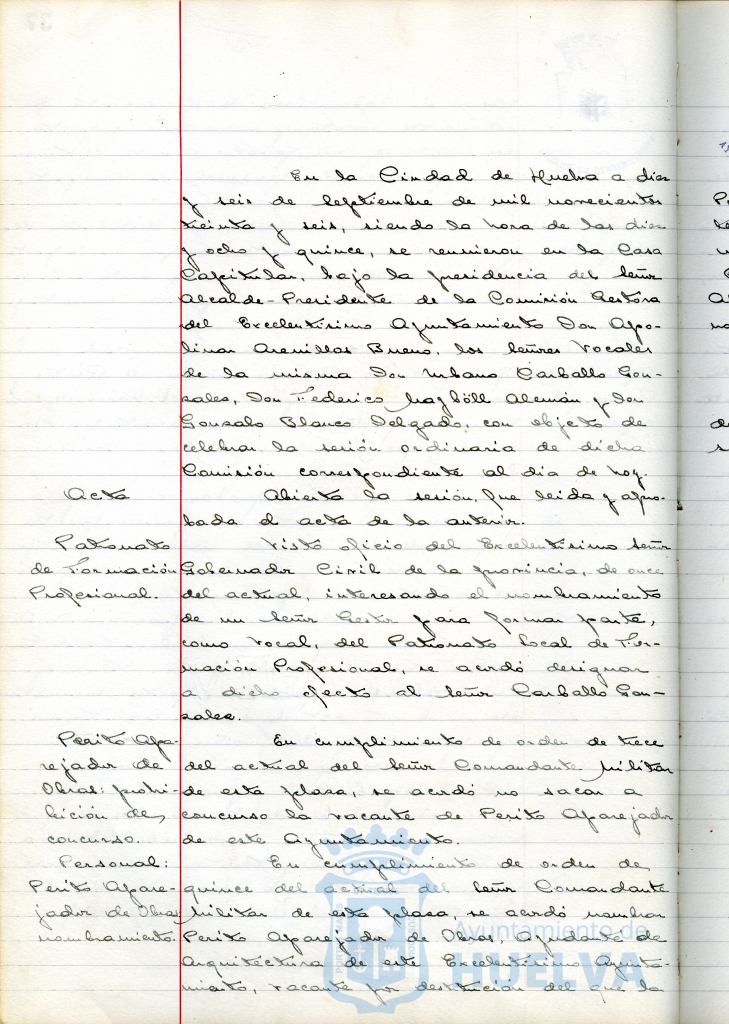 En la Ciudad de Huelva a diez
y seis de Septiembre de mil novecientos
treinta y seis, siendo la hora de las diez
y ocho y quince, se reunieron en la Casa
Capitular, bajo la presidencia del Señor
Alcalde-Presidente de la Comisión Gestora
del Excelentísimo Ayuntamiento Don Apo-
linar Arenillas Bueno, los Señores Vocales
de la misma Don Urbano Carballo Gon-
zales, Don Federico Alemán y Don
Gonzalo Blanco Delgado, con objeto de
celebrar la sesión ordinaria de dicha
Comisión correspondiente al día de hoy.
Acta
Abierta la sesión, fue leída y apro-
bada el acta de la anterior.
Patronato
de Formación
Profesional.
Visto oficio del Excelentísimo Señor
Gobernador Civil de la provincia, de once
del actual, interesando el nombramiento
de un Señor Gestor para formar parte,
como Vocal, del Patronato Local de For-
mación Profesional, se acordó designar
a dicho efecto al Señor Carballo Gon-
zales.
Perito Apa-
rejador de
Obras: prohi-
bición de
concurso.
En cumplimiento de orden de trece
del actual del Señor Comandante Militar
de esta plaza, se acordó no sacar a
concurso la vacante de Perito Aparejador
de este Ayuntamiento.
Personal:
Perito Apare-
jador de Obras
nombramiento.
En cumplimiento de orden de
quince del actual del Señor Comandante
Militar de esta plaza, se acordó nombrar
Perito Aparejador de Obras, Ayudante de
Arquitectura de este Excelentísimo Ayunta-
miento, vacante por destitución del que la
Ayuntamiento de
HUELVA